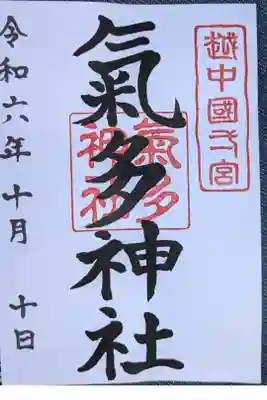 越中國弌宮
氣多神社
氣多
神社
令和六年十月 十日